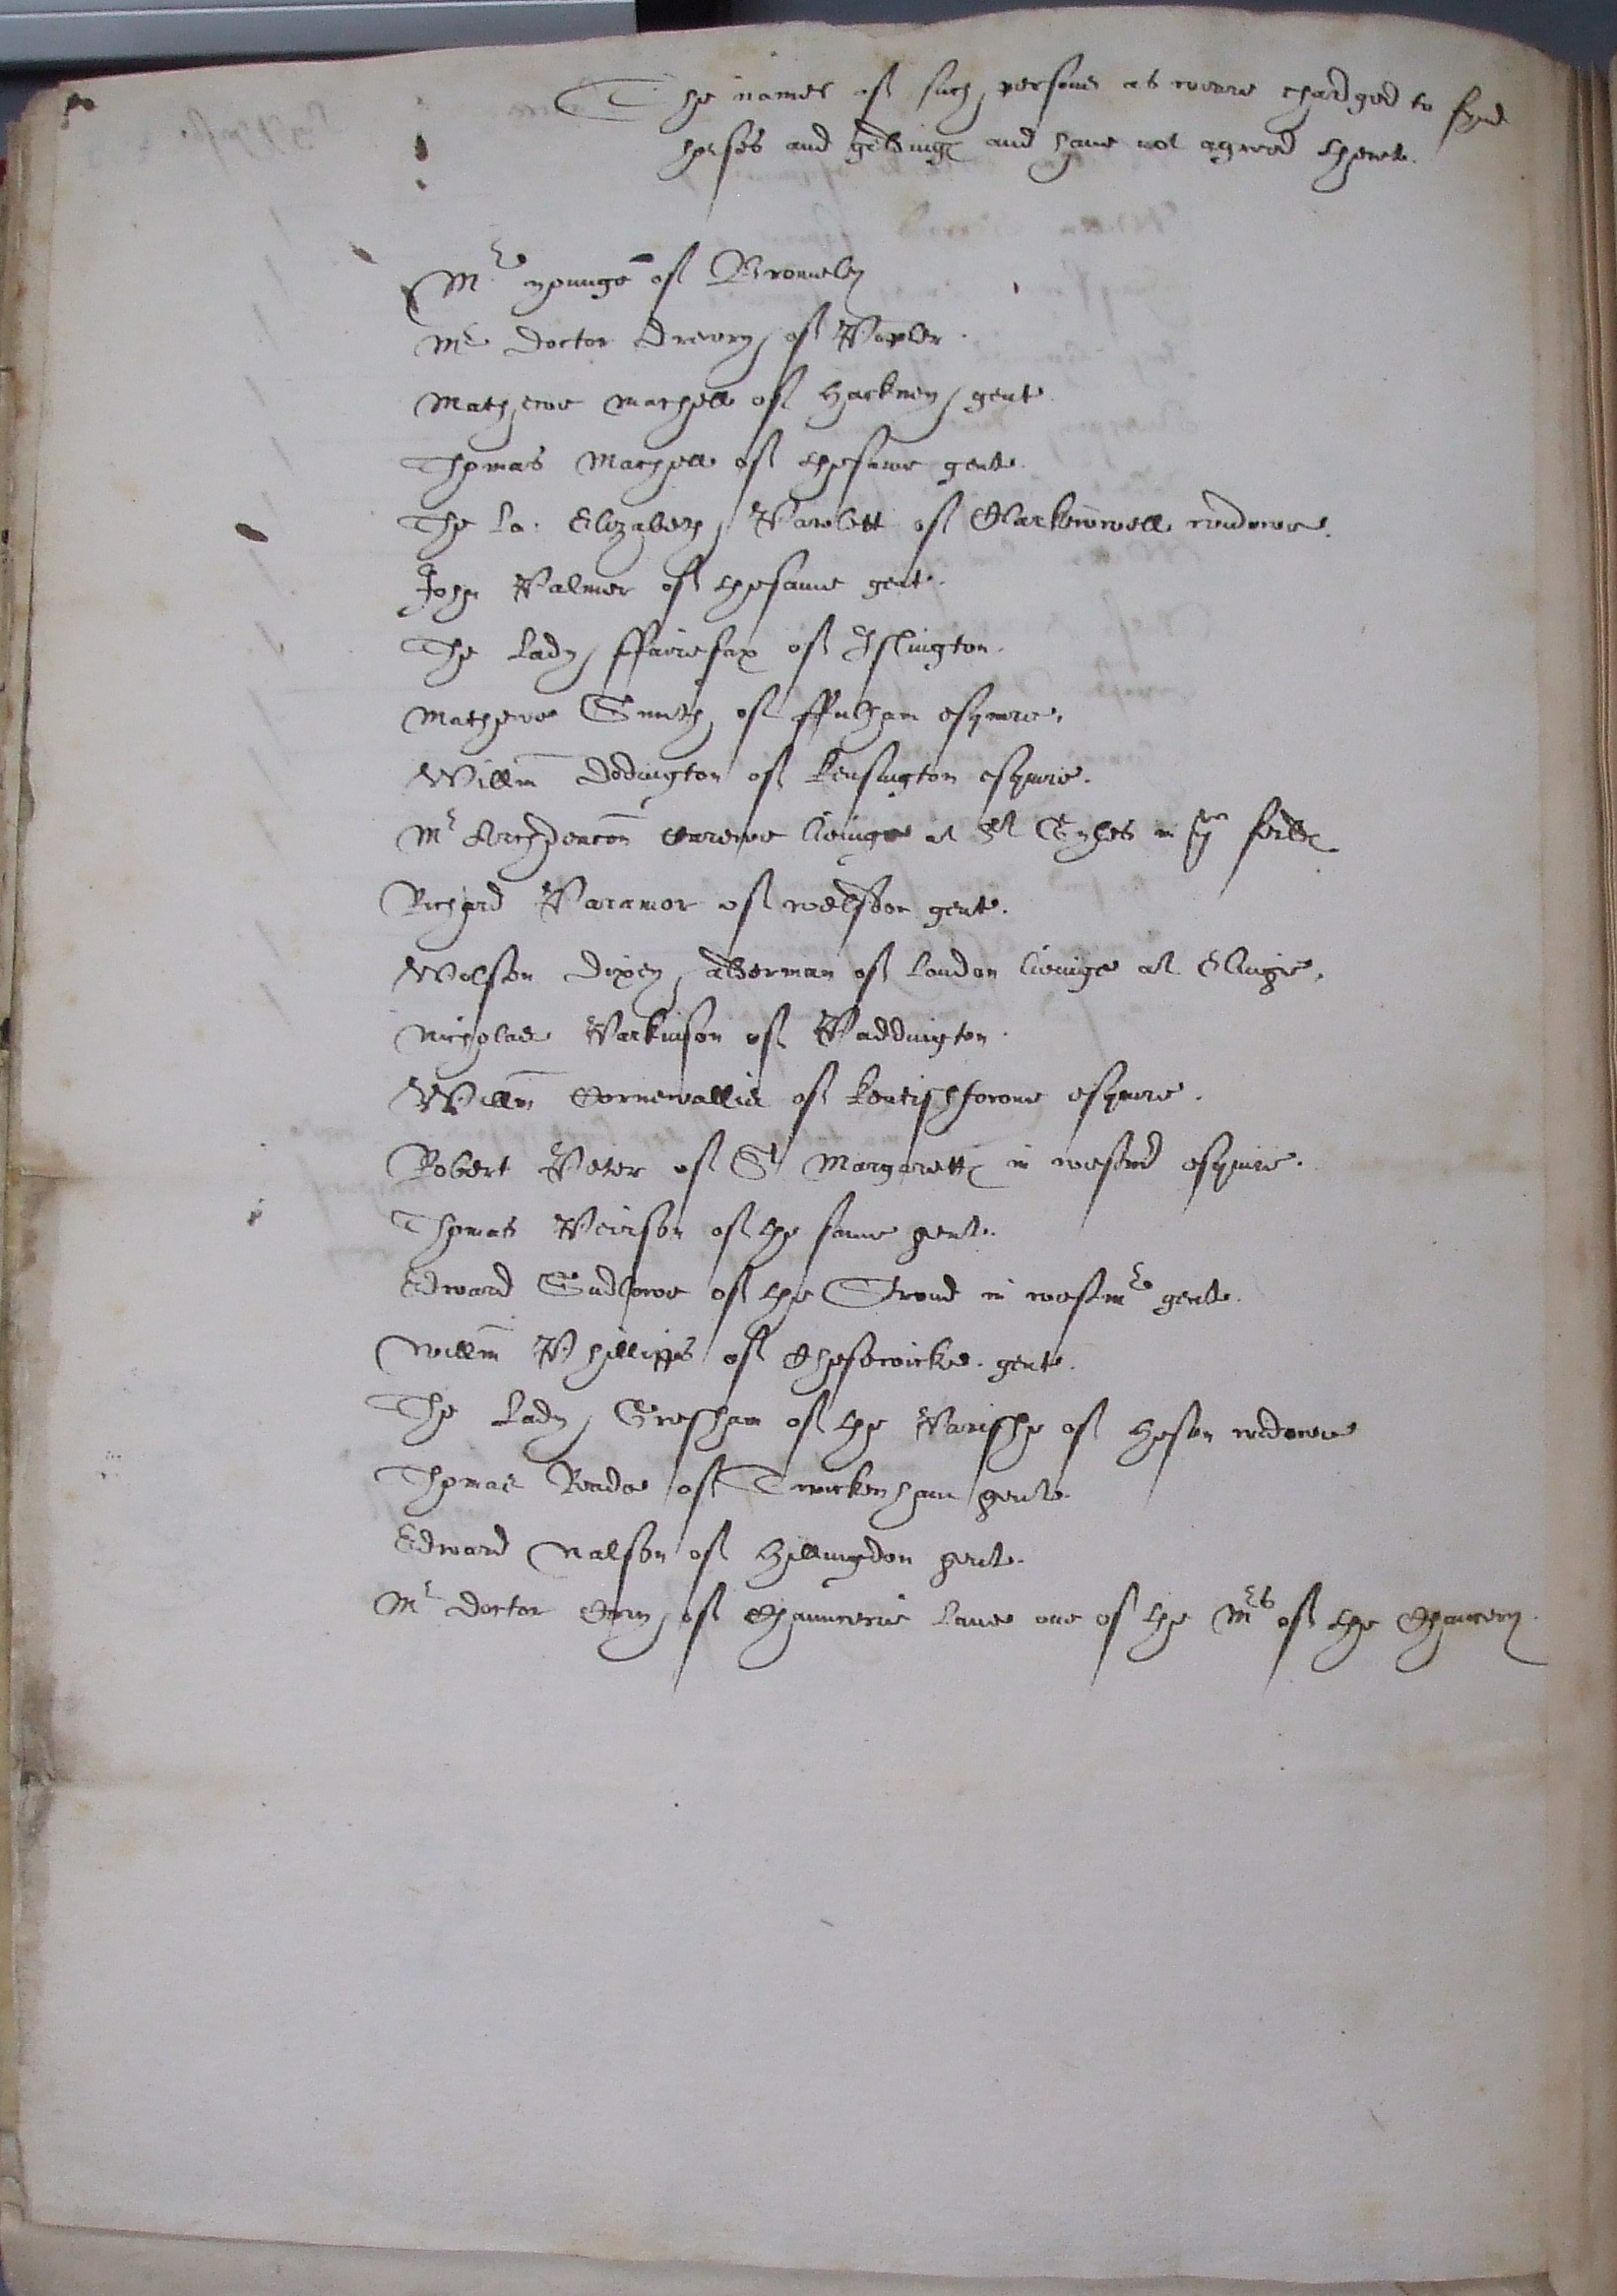 The names of such persons as weare chardged to fynd
horses and geldings and haue not agreed therto.
Mr younge of Bromeley
Mr Doctor Drewry of Popler.
Mathewe Machell of Hackney gent.
Thomas Machell of thesame gent.
The La: Elizabeth Pawlett of Clarkenwell widowe.
John Palmer of thesame gent.
The Lady ffairefax of Islington.
Mathewe Smith of ffulham esquire.
Willm Dodington of Kensington esquire.
Mr Archdeacon Carewe livinge at St Gyles in ye feildes
Richard Paramor of welsdon gent.
Wolston Dixey, alderman of London livinge at Elinge.
Nicholas Parkinson of Paddington.
Willm Cornewallis of Kentishtowne esquire.
Robert Peter of St Margaretts in westmr esquire.
Thomas Peirson of the same gent.
Edward Sudlowe of the Strond in westmr gent.
Willm Phillipps of Cheswicke gent.
The Lady Gresham of the Parishe of Heston widowe
Thomas Reade of Twickenham gent.
Edward Nalson of Hillingdon gent.
Mr Doctor Cary of Chauncerie Lane one of the Mrs of the Chancery.